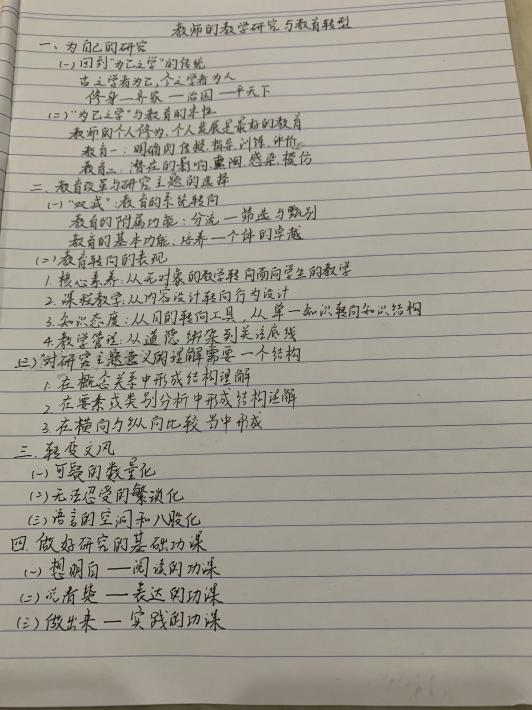 教师的教学研究与教育转型
一、为自己的研究
(一)回到"为己之学"的传统
古之学者为己,今之学者为人
修身—齐家—治国—平天下
(二)"为己之学"与教育的本性
教师的个人修为、个人发展是最好的教育
教育一:明确的传授、指导、训练、评价
教育二:潜在的影响、熏陶、感染、模仿
二、教育改革与研究主题的选择
(一)"双减":教育的系统转向
教育的附属功能:分流—筛选与甄别
教育的基本功能:培养—个体的卓越
(二)教育转向的表现
1.核心素养:从无对象的教学转向面向学生的教学
2.课程教学:从内容设计转向行为设计
3.知识态度:从目的转向工具,从单一知识转向知识结构
4.教学管理:从道德绑架到关注底线
(三)对研究主题意义的理解需要一个结构
1.在概念关系中形成结构理解
2.在要素或类别分析中形成结构理解
3.在横向与纵向比较当中形成
三.转变文风
(一)可疑的数量化
(二)无法忍受的繁琐化
(三)语言的空洞和八股化
四.做好研究的基础功课
(一)想明白——阅读的功课
(二)说清楚——表达的功课
(三)做出来—实践的功课